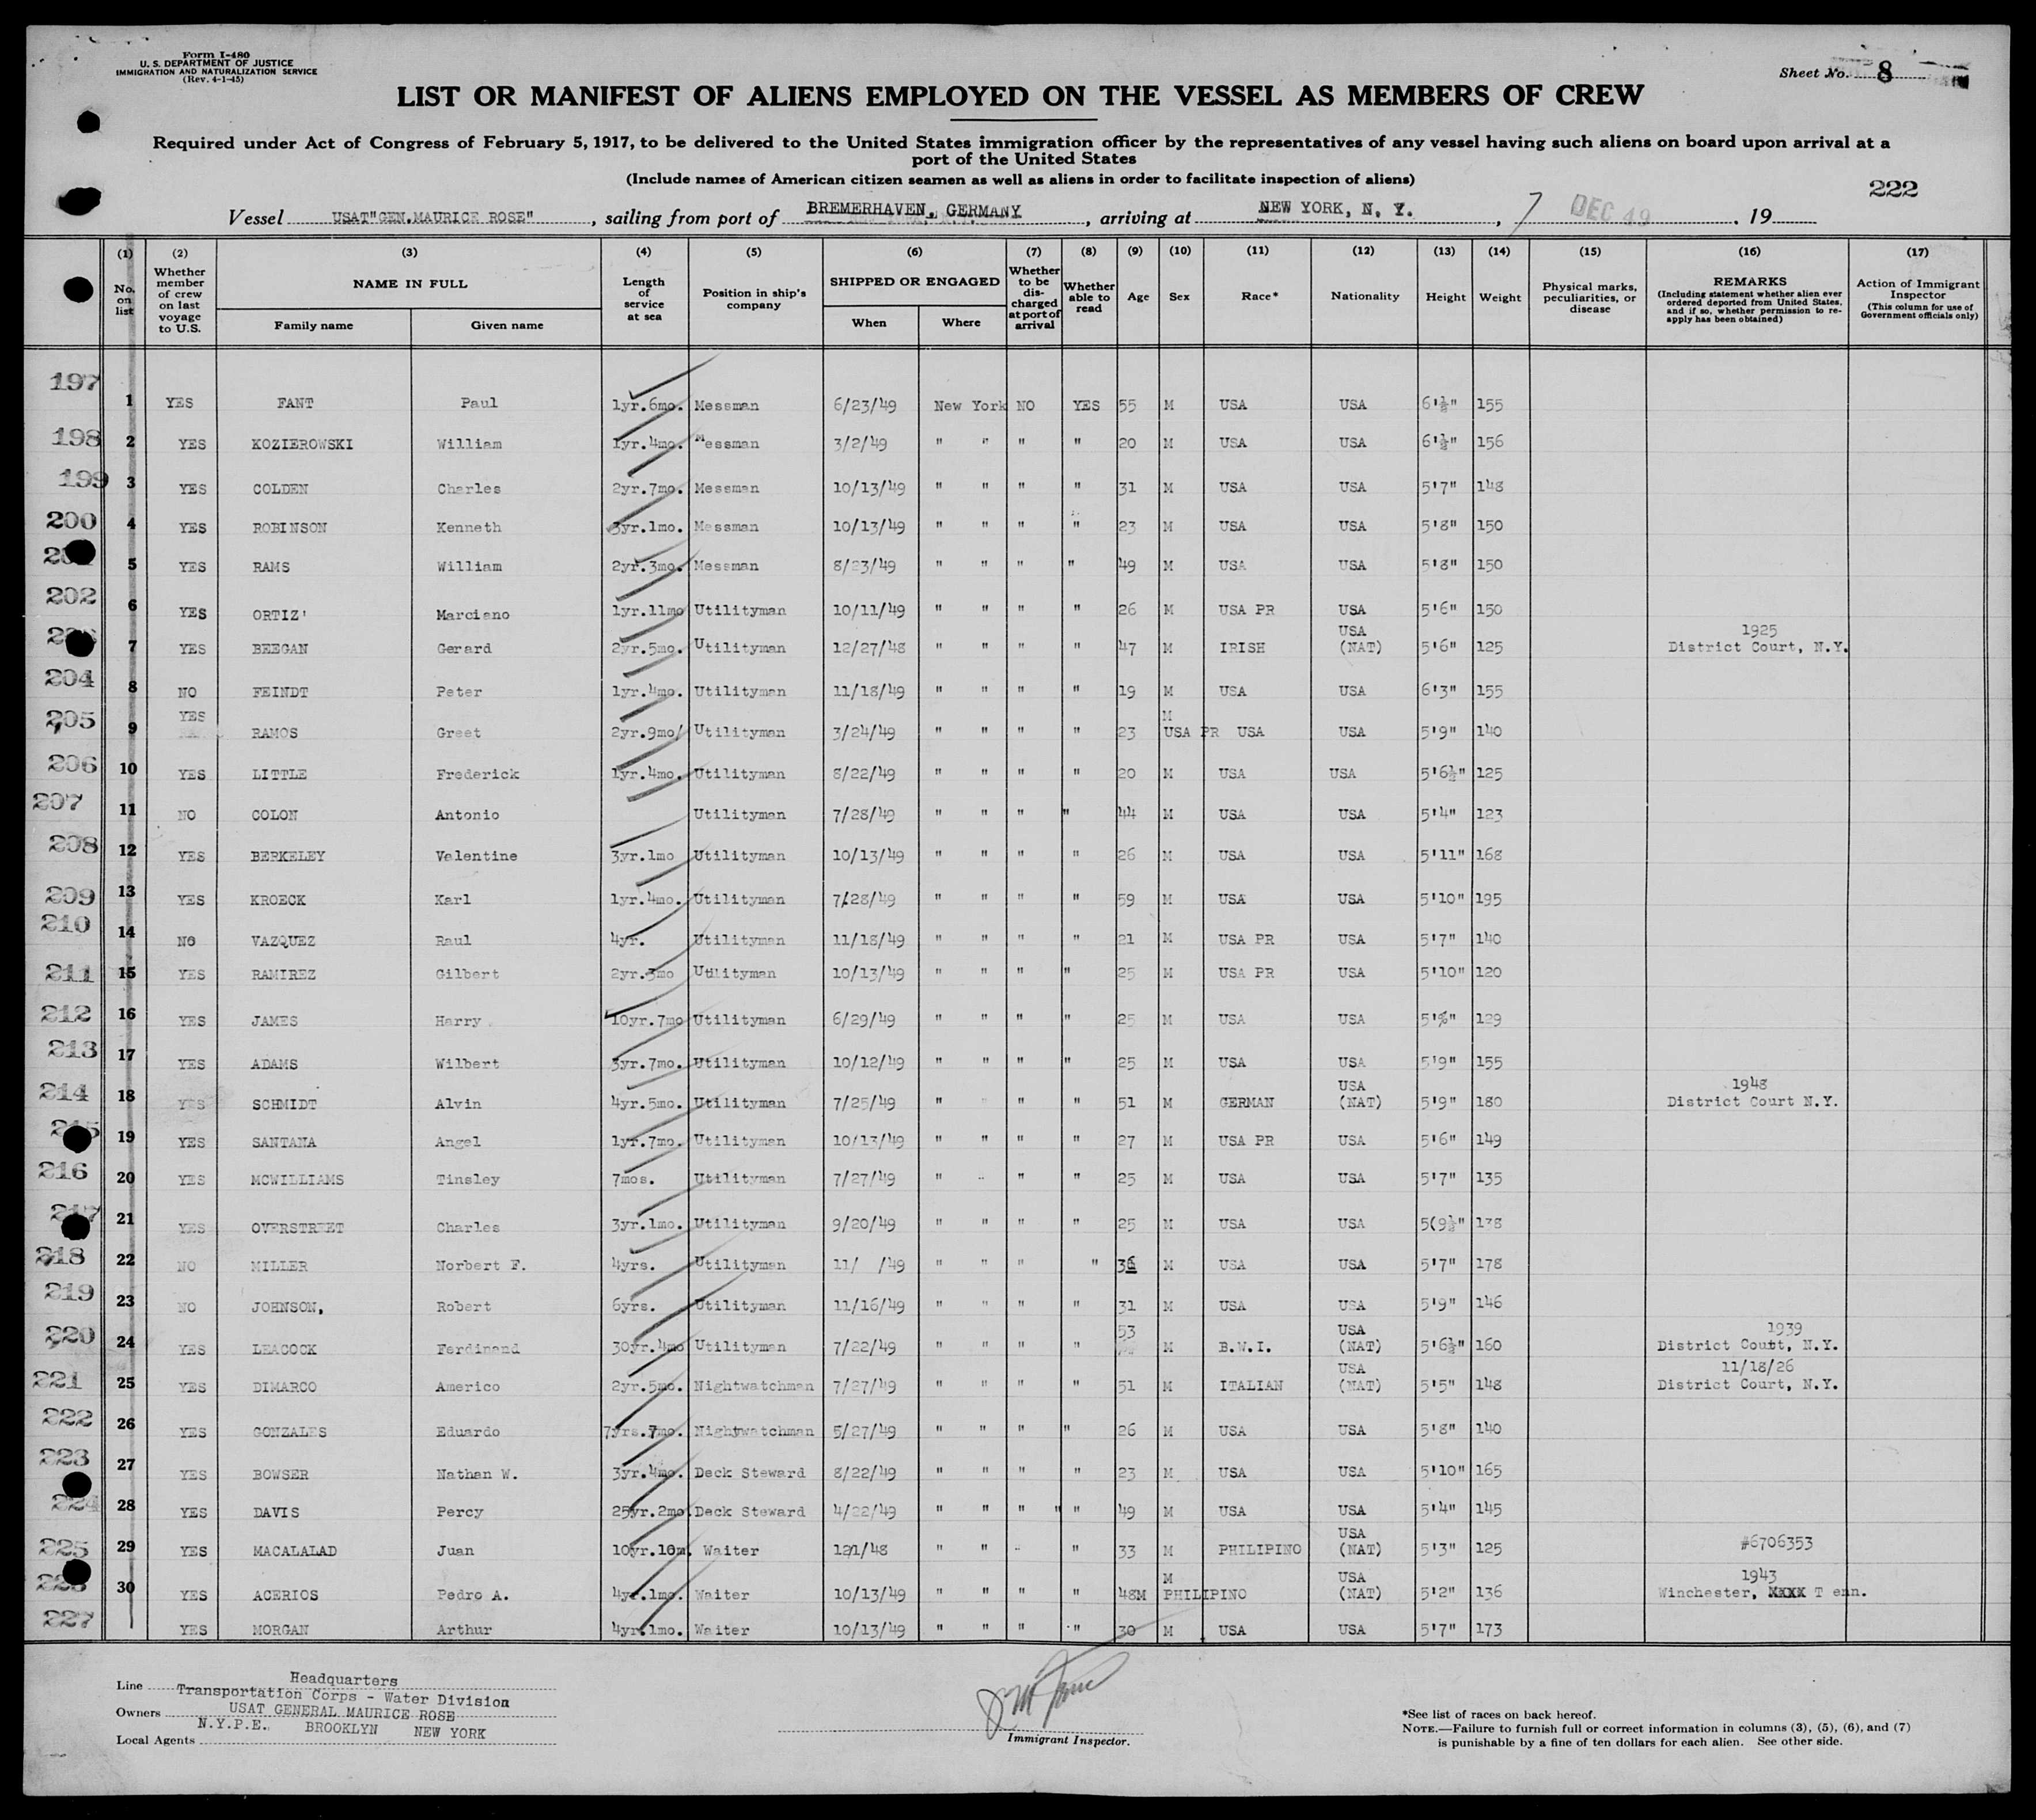 Form I-480
U. S. DEPARTMENT OF JUSTICE
IMMIGRATION AND NATURALIZATION SERVICE
(Rev. 4-1-45)
Sheet No. 8
LIST OR MANIFEST OF ALIENS EMPLOYED ON THE VESSEL AS MEMBERS OF CREW
Required under Act of Congress of February 5, 1917, to be delivered to the United States immigration officer by the representatives of any vessel having such aliens on board upon arrival at a
port of the United States
(Include names of American citizen seamen as well as aliens in order to facilitate inspection of aliens)
222
Vessel USAT"GEN.MAURICE ROSE", sailing from port of BREMERHAVEN, GERMANY, arriving at NEW YORK, N. Y., 7 DEC 49, 19
(1) (2) (3) (4) (5) (6) (7) (8) (9) (10) (11) (12) (13) (14) (15) (16) (17)
No. on list
Whether member of crew on last voyage to U.S.
NAME IN FULL
Family name Given name
Length of service at sea
Position in ship's company
SHIPPED OR ENGAGED
When Where
Whether to be discharged at port of arrival
Whether able to read
Age
Sex
Race*
Nationality
Height
Weight
Physical marks, peculiarities, or disease
REMARKS
(Including statement whether alien ever ordered deported from United States, and if so, whether permission to reapply has been obtained)
Action of Immigrant Inspector
(This column for use of Government officials only)
197 1 YES FANT Paul 1yr.6mo. Messman 6/23/49 New York NO YES 55 M USA USA 6'½" 155
198 2 YES KOZIEROWSKI William 1yr.4mo. Messman 3/2/49 " " " " 20 M USA USA 6'½" 156
199 3 YES COLDEN Charles 2yr.7mo. Messman 10/13/49 " " " " 31 M USA USA 5'7" 148
200 4 YES ROBINSON Kenneth 3yr.1mo. Messman 10/13/49 " " " " 23 M USA USA 5'8" 150
5 YES RAMS William 2yr.3mo. Messman 8/23/49 " " " " 49 M USA USA 5'8" 150
202 6 YES ORTIZ' Marciano 1yr.11mo Utilityman 10/11/49 " " " " 26 M USA PR USA 5'6" 150
7 YES BEEGAN Gerard 2yr.5mo. Utilityman 12/27/48 " " " " 47 M IRISH USA (NAT) 5'6" 125 1925 District Court, N.Y.
204 8 NO FEINDT Peter 1yr.4mo. Utilityman 11/18/49 " " " " 19 M USA USA 6'3" 155
205 9 YES RAMOS Greet 2yr.9mo/ Utilityman 3/24/49 " " " " 23 M USA PR USA USA 5'9" 140
206 10 YES LITTLE Frederick 1yr.4mo. Utilityman 8/22/49 " " " " 20 M USA USA 5'6½" 125
207 11 NO COLON Antonio Utilityman 7/28/49 " " " " 44 M USA USA 5'4" 123
208 12 YES BERKELEY Valentine 3yr.1mo Utilityman 10/13/49 " " " " 26 M USA USA 5'11" 168
209 13 YES KROECK Karl 1yr.4mo. Utilityman 7/28/49 " " " " 59 M USA USA 5'10" 195
210 14 NO VAZQUEZ Raul 4yr. Utilityman 11/18/49 " " " " 21 M USA PR USA 5'7" 140
211 15 YES RAMIREZ Gilbert 2yr.3mo Utilityman 10/13/49 " " " " 25 M USA PR USA 5'10" 120
212 16 YES JAMES Harry 10yr.7mo Utilityman 6/29/49 " " " " 25 M USA USA 129
213 17 YES ADAMS Wilbert 3yr.7mo. Utilityman 10/12/49 " " " " 25 M USA USA 5'9" 155
214 18 YES SCHMIDT Alvin 4yr.5mo. Utilityman 7/25/49 " " " 51 M GERMAN USA (NAT) 5'9" 180 1948 District Court N.Y.
215 19 YES SANTANA Angel 1yr.7mo. Utilityman 10/13/49 " " " " 27 M USA PR USA 5'6" 149
216 20 YES MCWILLIAMS Tinsley 7mos. Utilityman 7/27/49 " " " " 25 M USA USA 5'7" 135
217 21 YES OVERSTREET Charles 3yr.1mo. Utilityman 9/20/49 " " " " 25 M USA USA 5(9½" 138
218 22 NO MILLER Norbert F. 4yrs. Utilityman 11/ /49 " " " " 36 M USA USA 5'7" 178
219 23 NO JOHNSON, Robert 6yrs. Utilityman 11/16/49 " " " " 31 M USA USA 5'9" 146
220 24 YES LEACOCK Ferdinand 30yr.4mo Utilityman 7/22/49 " " " " 53 M B.W.I. USA (NAT) 5'6½" 160 1939 District Court, N.Y.
221 25 YES DIMARCO Americo 2yr.5mo. Nightwatchman 7/27/49 " " " " 51 M ITALIAN USA (NAT) 5'5" 148 11/18/26 District Court, N.Y.
222 26 YES GONZALES Eduardo 7yrs.7mo. Nightwatchman 5/27/49 " " " " 26 M USA USA 5'8" 140
223 27 YES BOWSER Nathan W. 3yr.4mo. Deck Steward 8/22/49 " " " " 23 M USA USA 5'10" 165
224 28 YES DAVIS Percy 25yr.2mo. Deck Steward 4/22/49 " " " " " 49 M USA USA 5'4" 145
225 29 YES MACALALAD Juan 10yr.10m. Waiter 121/48 " " " " 33 M PHILIPINO USA (NAT) 5'3" 125 #6706353
30 YES ACERIOS Pedro A. 4yr.1mo. Waiter 10/13/49 " " " " 48M M PHILIPINO USA (NAT) 5'2" 136 1943 Winchester, XXXX T enn.
227 YES MORGAN Arthur 4yr.1mo. Waiter 10/13/49 " " " " 30 M USA USA 5'7" 173
Line Headquarters
Transportation Corps - Water Division
Owners USAT GENERAL MAURICE ROSE
Local Agents N.Y.P.E. BROOKLYN NEW YORK
Immigrant Inspector.
*See list of races on back hereof.
NOTE.—Failure to furnish full or correct information in columns (3), (5), (6), and (7)
is punishable by a fine of ten dollars for each alien. See other side.